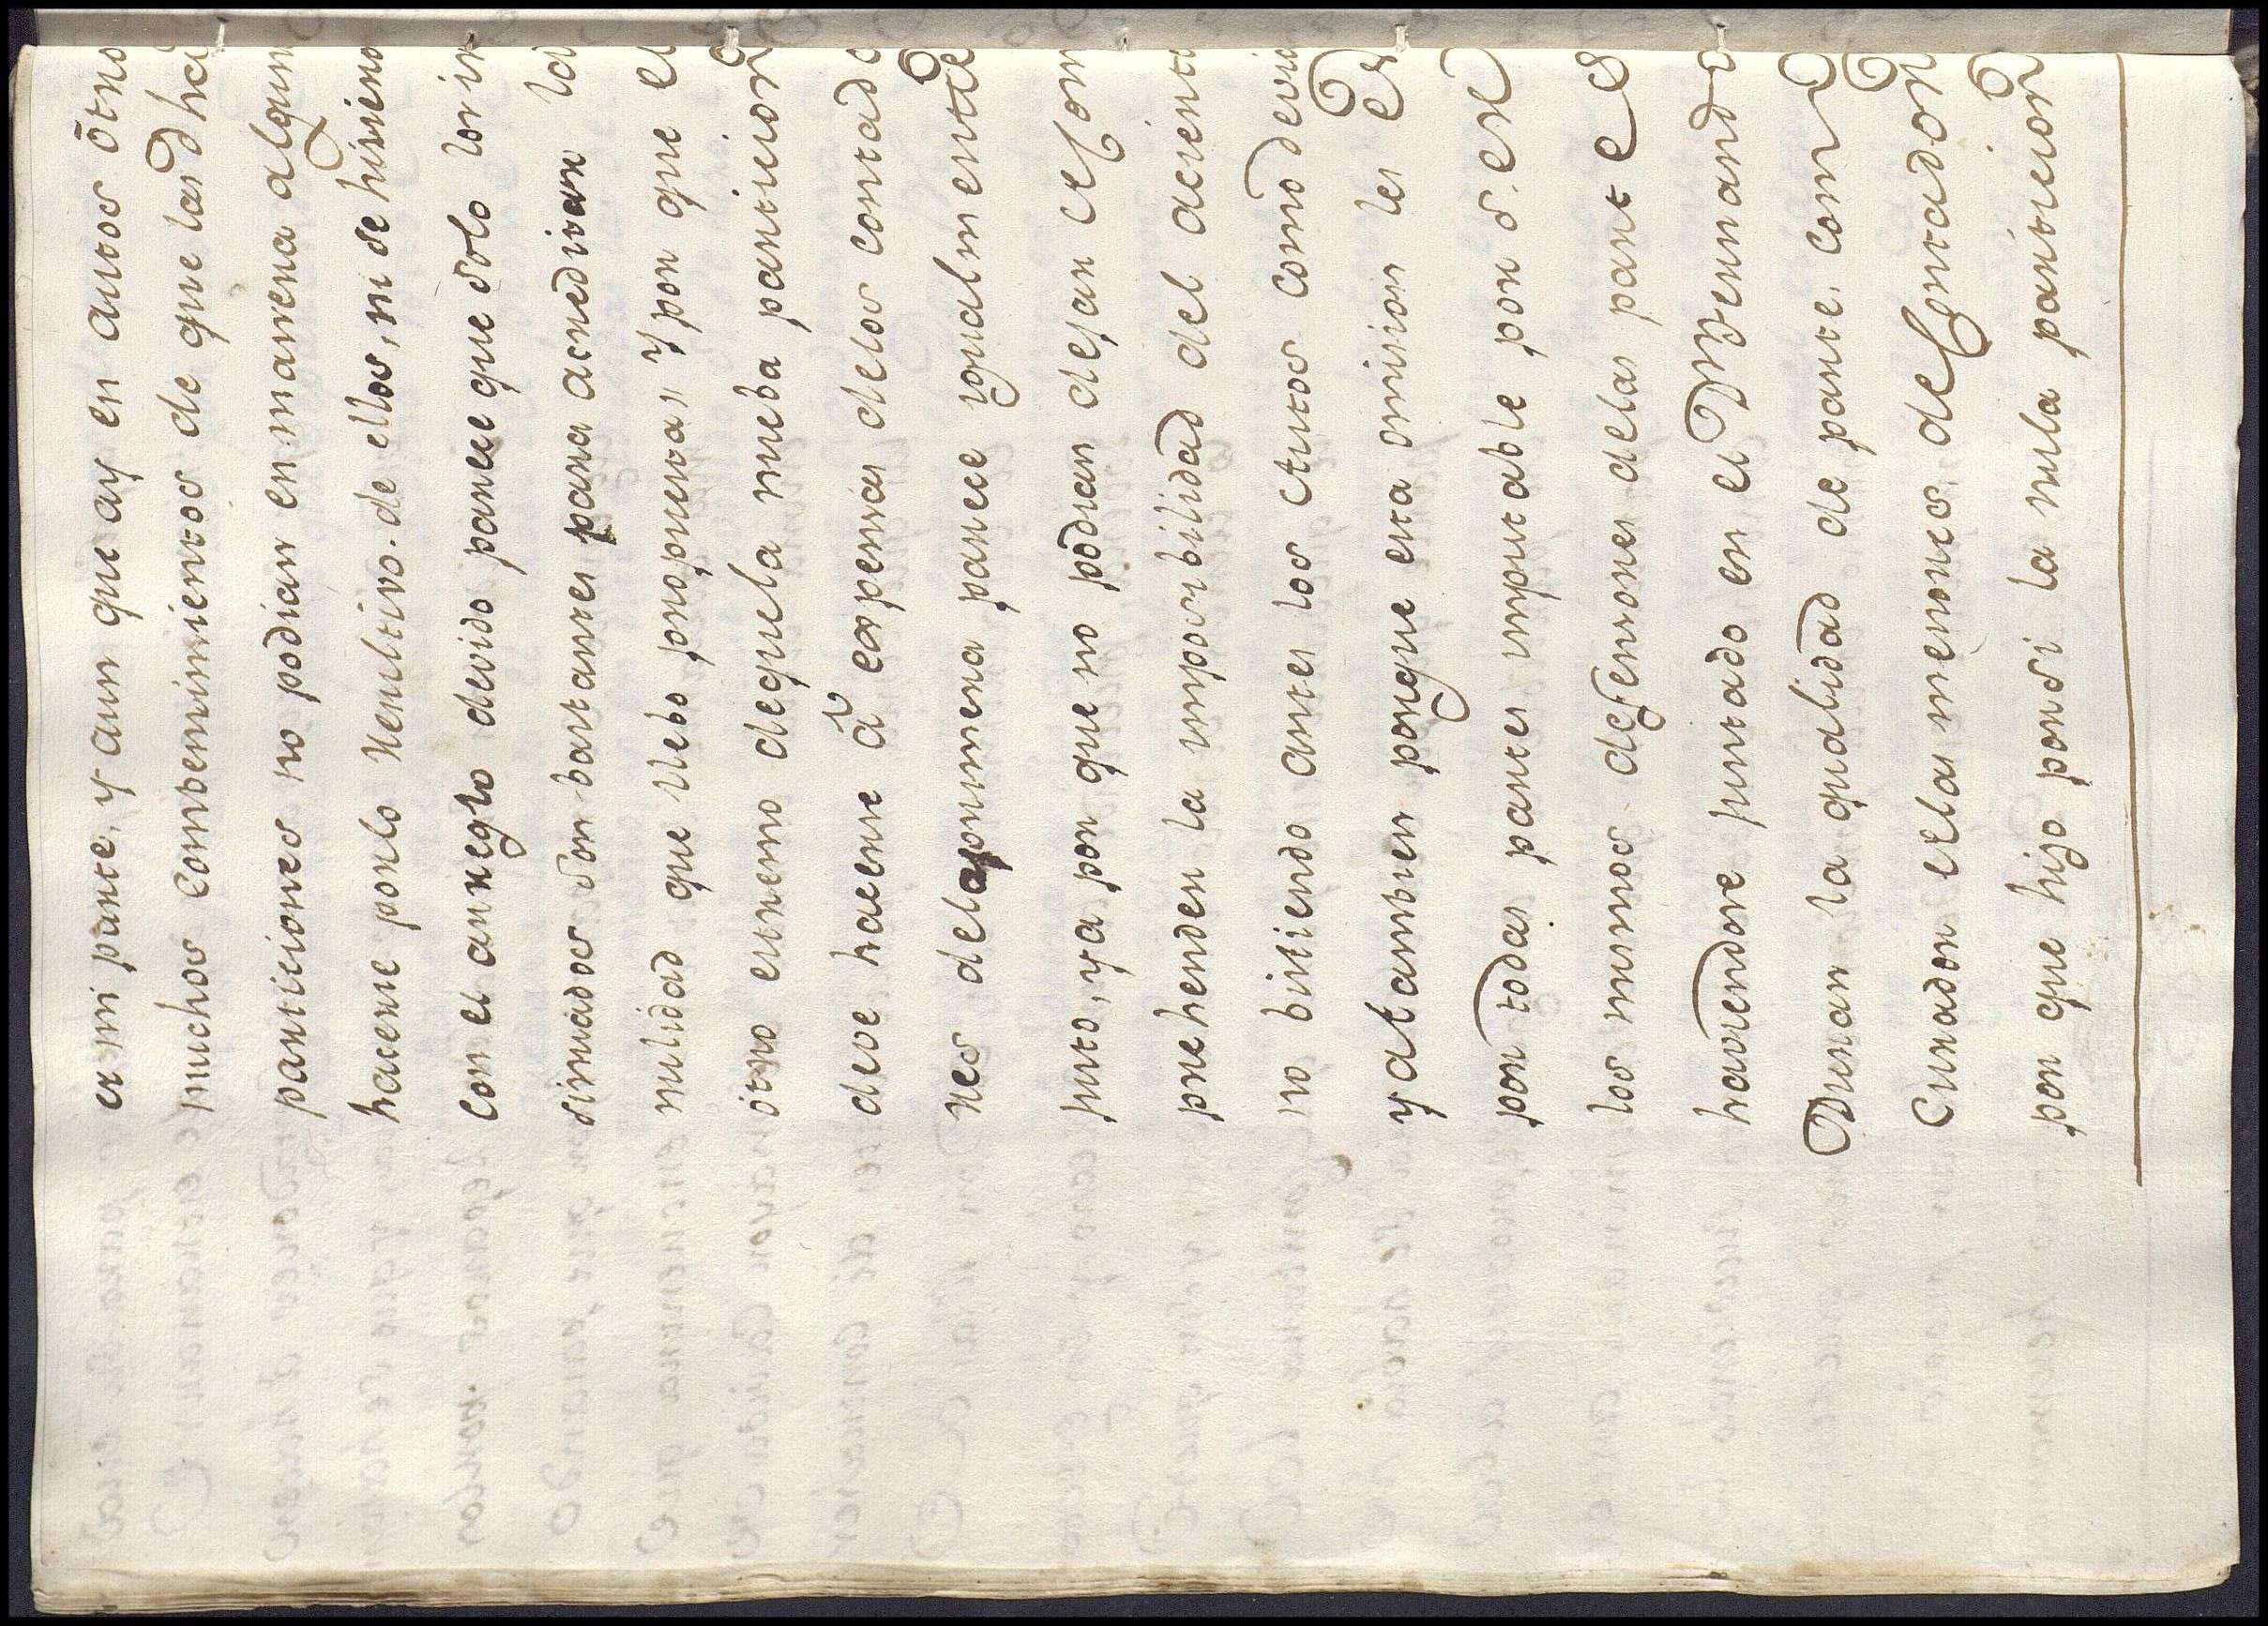 es mi parte, y aun que ay en autos otro
muchos Combenimientos de que las d ha
particiones no podian en manera algun
hacerse por lo Resultivo de ellos, ni se hisiero
Con el arreglo devido parece que solo los in
sinuados son bastantes para acreditar la
nulidad que llebo propuesta,, Y por que el
otro extremo de que la nueba particion
deve hacerse â expensas de los contado
res de la primera parece igualmente
justo, ya por que no podian dejar de Com
prehenden la imposibilidad del acierto
no bistiendo antes los Autos como devia
y at ambien porque esta omision les es
por todas partes imputable por ser
los mismos defensores de las partes
haviendose juntado en el D.r Bernardo
Duran la qualidad de parte, como
Curador de las menores, de Contador
por que hizo por si la nula particion